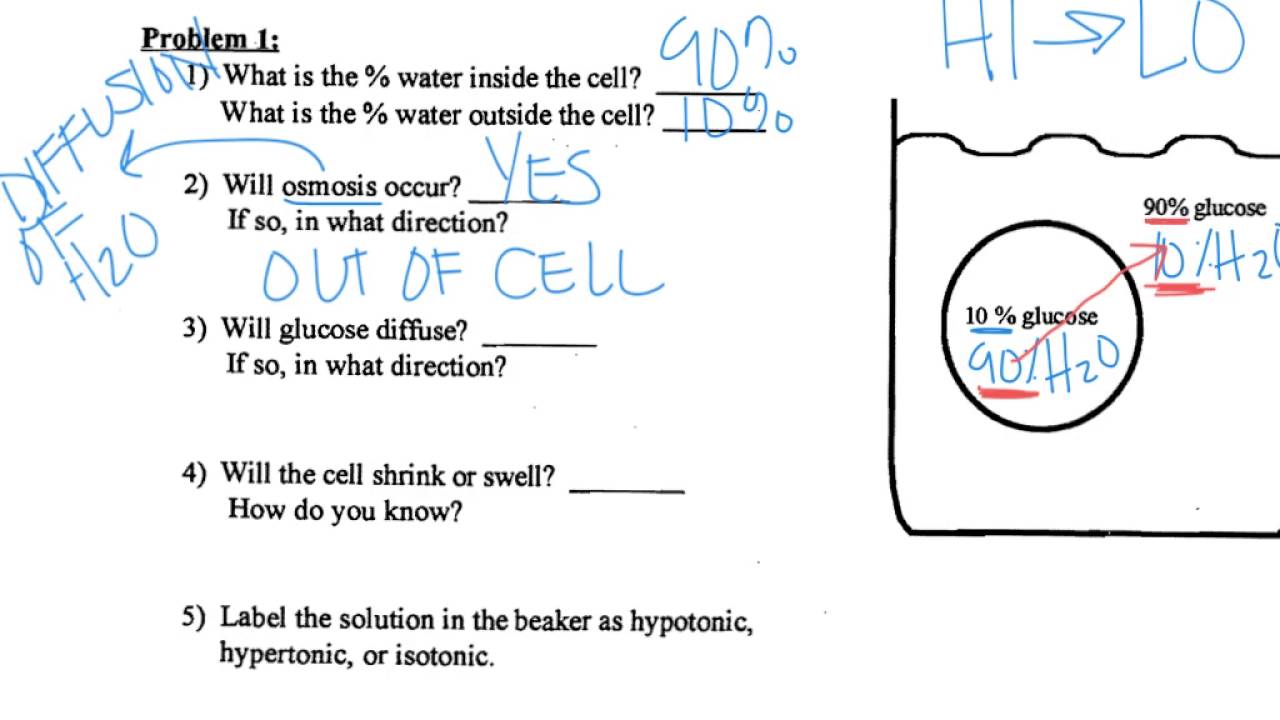 Problem 1:
1) What is the % water inside the cell? 90%
What is the % water outside the cell? 10%
DIFFUSION
OF
H2O
2) Will osmosis occur? YES
If so, in what direction?
OUT OF CELL
3) Will glucose diffuse?
If so, in what direction?
4) Will the cell shrink or swell?
How do you know?
5) Label the solution in the beaker as hypotonic,
hypertonic, or isotonic.
HI → LO
90% glucose
10% H2O
10 % glucose
90% H2O